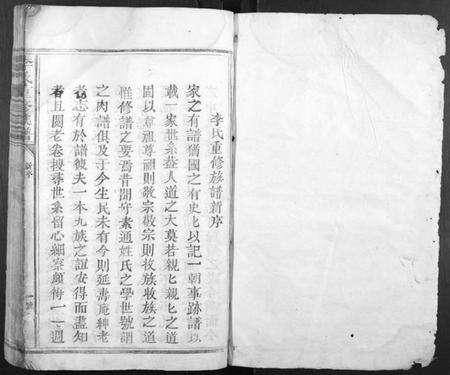 李氏重修族譜新序
家之有譜猶國之有史史以記一朝事跡譜以
載一家世系蓋人道之大莫若親親親親之道
固以尊祖尊祖則敬宗敬宗則收族收族之道
惟修譜之要焉昔閒守素通姓氏之學世號謂
之肉譜俱及于今生民未有今則延壽庵
老志有於譜
夫一本九族之誼安得而盡知
者且閱老卷搜尋世系留心細察
一一週